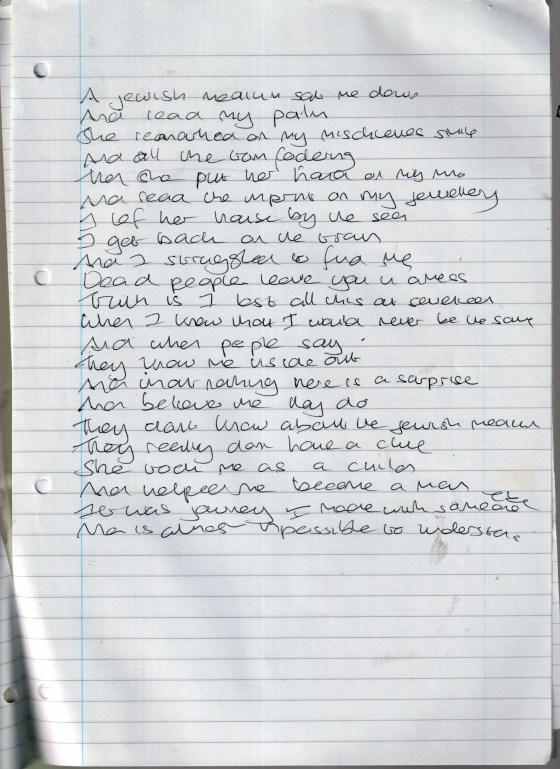 A jewish medium sat me down
And read my palm
She remarked on my mischieves smile
And all the
Then she put her hand on my
And read the imprint on my jewellery
I lef her house by the sea
I got back on the train
And I struggled to find me
Dead people leave you in a mess
Truth is I lost all this at seventeen
When I knew that I would never be the same
And when people say
They know me inside out
And that nothing here is a surprise
And believe me they do
They dont know about the jewish medium
They really dont have a clue
She took me as a child
And helped me become a man
It was journey I made with someone else
Who is almost impossible to understand